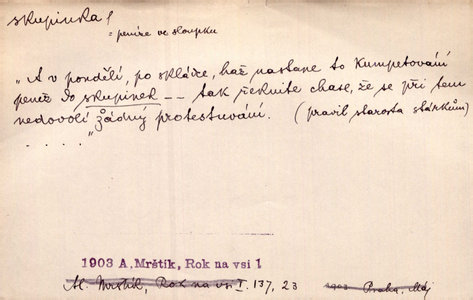 skupinka!
= peníze ve sloupku
„A v pondělí, po skládce, haž nastane to kumpetování
peněz do skupinek -- tak řeknite chase, že se při tem
nedovolí žádný protestuvání. (pravil starosta stárkům)
. . . . . "
1903 A. Mrštík, Rok na vsi 1
Al. Mrštík, Rok na vsi I. 137, 23 1903 Praha, Máj